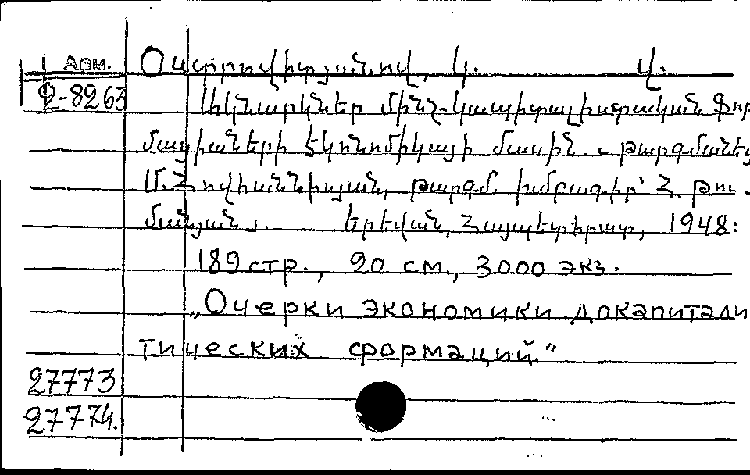 1 Арм. Օստրովիտյանով, Կ. Վ.
Փ-8263 Ակնարկներ մինչ-կապիտալիստական ֆոր
մացիաների էկոնոմիկայի մասին. – թարգմանեց
Մ. Հովհաննիսյան, թարգմ. խմբագիր՝ Հ. թու
մանյան: Երևան, Հայպետհրատ, 1948:
189 стр., 20 см., 3000 экз.
„Очерки экономики докапитали
тических формаций"
27773
27774.